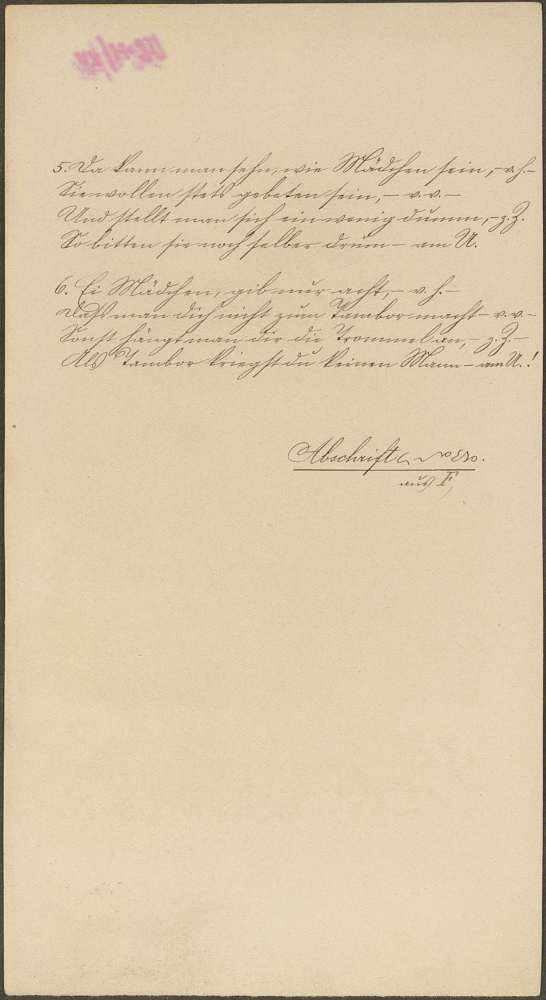 5. Da kann man sehn, wie Mädchen sein, – v. h. –
Sie wollen stets gebeten sein, – v. v. –
Und stellt man sich ein wenig dumm, – z. Z.
So bitten sie noch selber drum – am U.
6. Ei Mädchen, gib nur acht, – v. h. –
Daß man dich nicht zum Tambor macht – v. v. –
Sonst hängt man dir die Trommel an, – z. Z. –
Als Tambor kriegst du keinen Mann – am U.!
Abschrift
aus F,